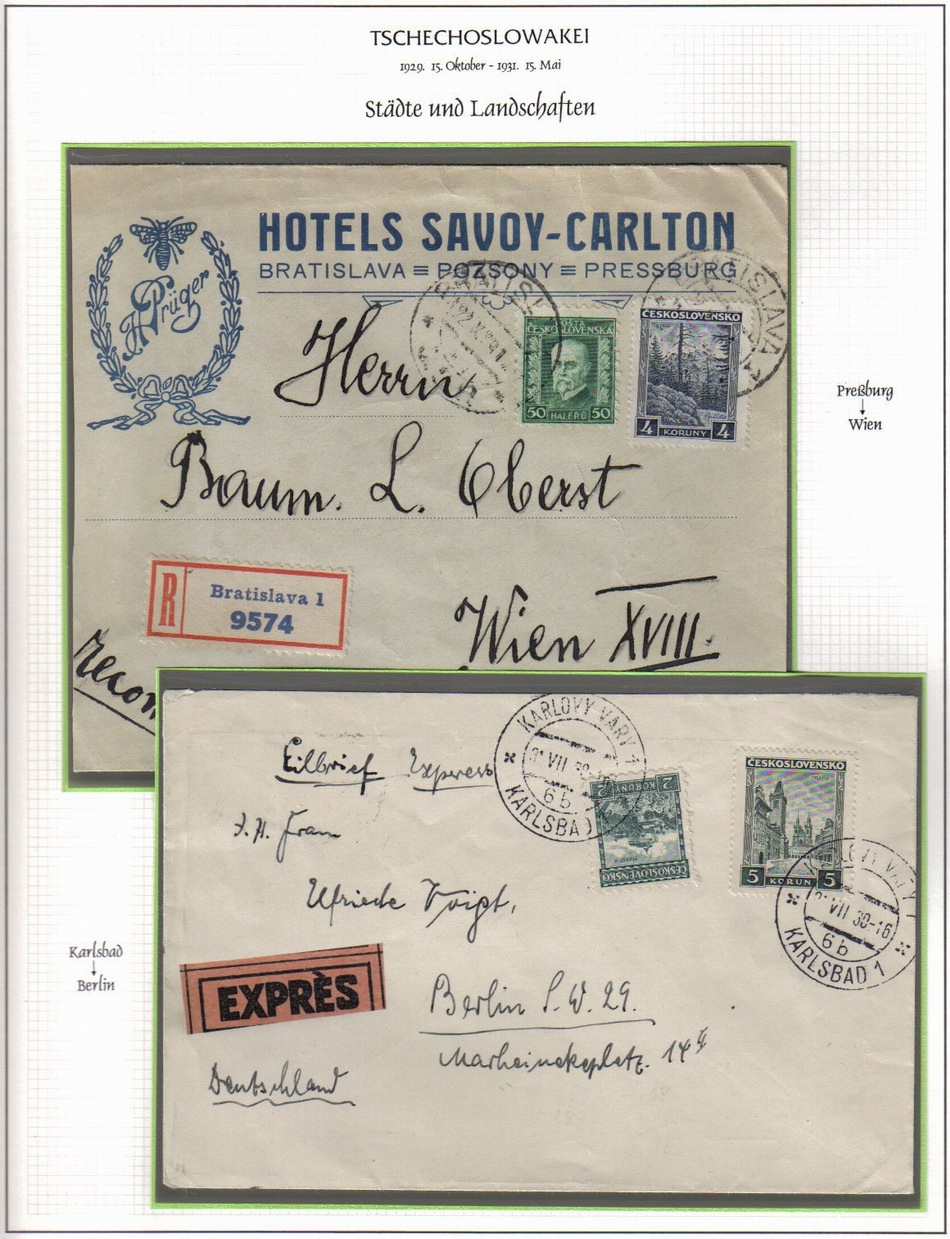 TSCHECHOSLOWAKEI
1929. 15. Oktober - 1931. 15. Mai
Städte und Landschaften
HOTELS SAVOY-CARLTON
BRATISLAVA ≡ POZSONY ≡ PRESSBURG
Prüger
BRATISLAVA
POSTA
ČESKOSLOVENSKÁ
50 HALÉŘŮ 50
ČESKOSLOVENSKO
4 KORUNY 4
Herrn
Baum. L. Oberst
Preßburg
↓
Wien
R Bratislava 1
9574
Wien XVIII.
Recom
KARLOVY VARY 1
31 VII 30-16
6b
KARLSBAD 1
Eilbrief Express
ČESKOSLOVENSKO
2 KORUNY 2
ČESKOSLOVENSKO
PRAHA
5 KORUN 5
KARLOVY VARY 1
31 VII 30-16
6b
KARLSBAD 1
Voigt,
Karlsbad
↓
Berlin
EXPRÈS
Berlin S. W. 29.
Marheinekeplatz. 14
Deutschland